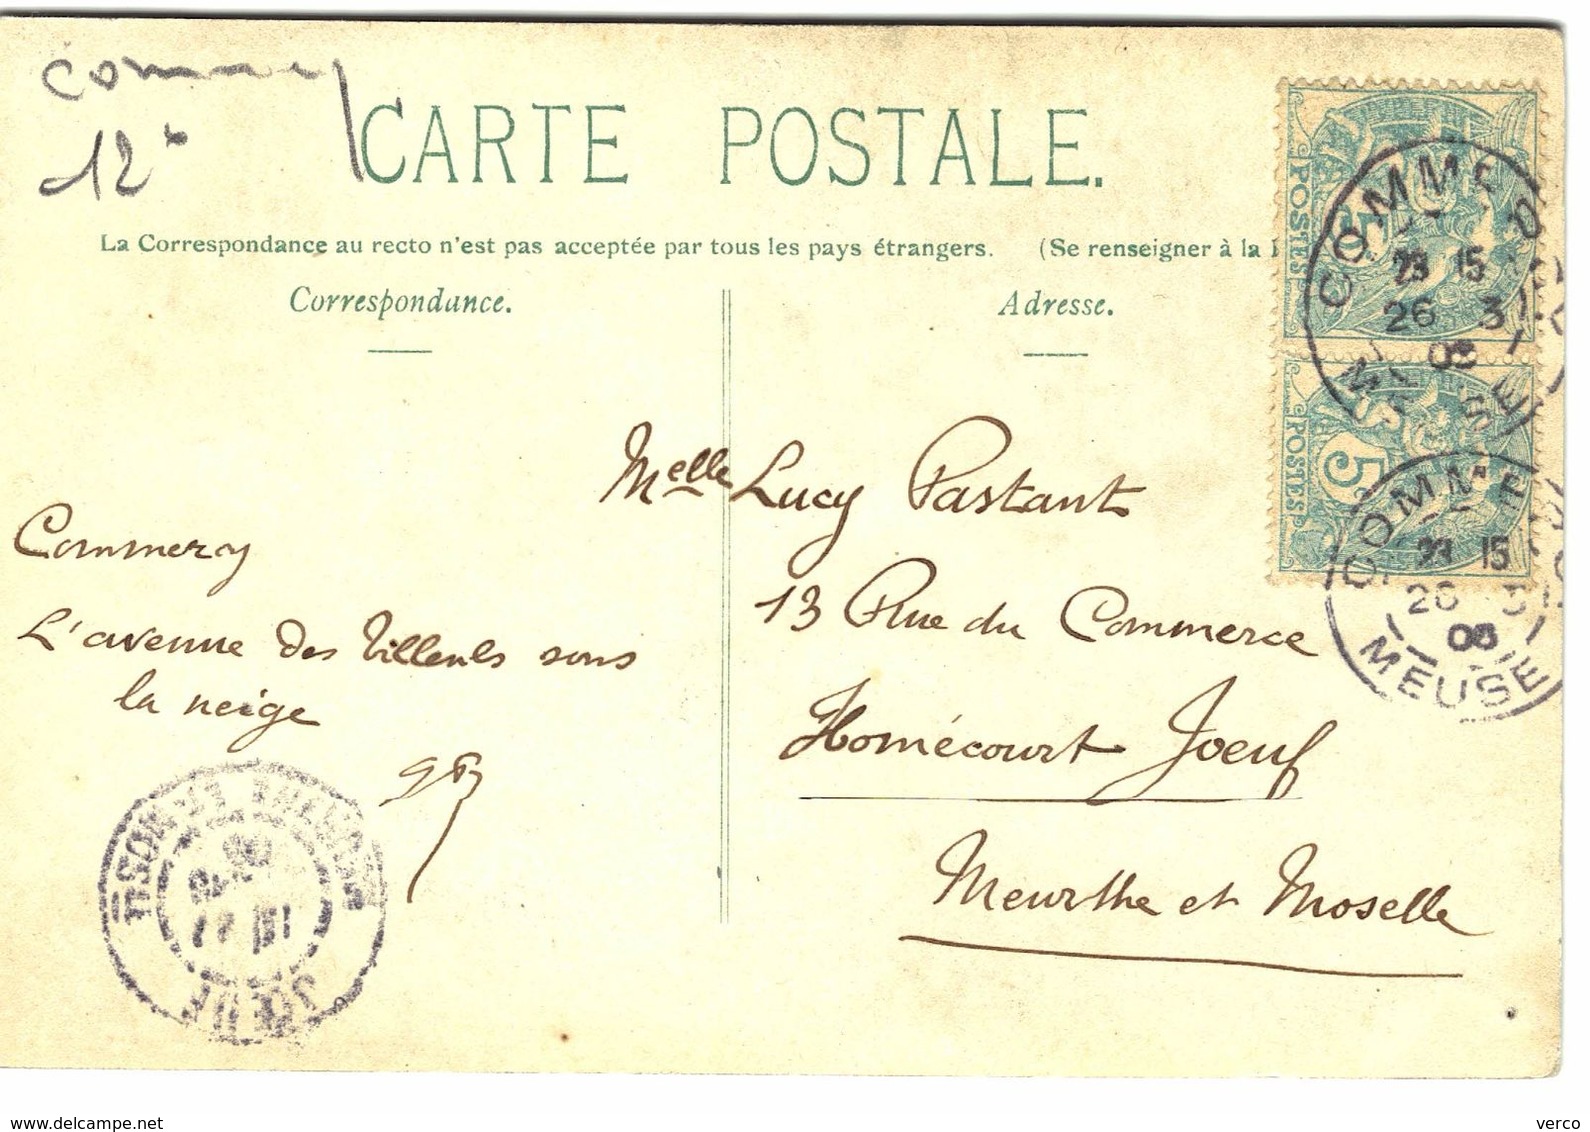 Commercy
12
CARTE POSTALE.
La Correspondance au recto n'est pas acceptée par tous les pays étrangers. (Se renseigner à la
Correspondance.
Adresse.
POSTES
5
POSTES
5
COMMERCY
23 15
26 3
MEUSE
COMMERCY
23 15
26 3
MEUSE
Melle Lucy Pastant
13 Rue du Commerce
Homécourt Joeuf
Meurthe et Moselle
Commercy
L'avenue des Tilleuls sous
la neige
MEURTHE-ET-MOSELLE
JOEUF
www.delcampe.net
verco